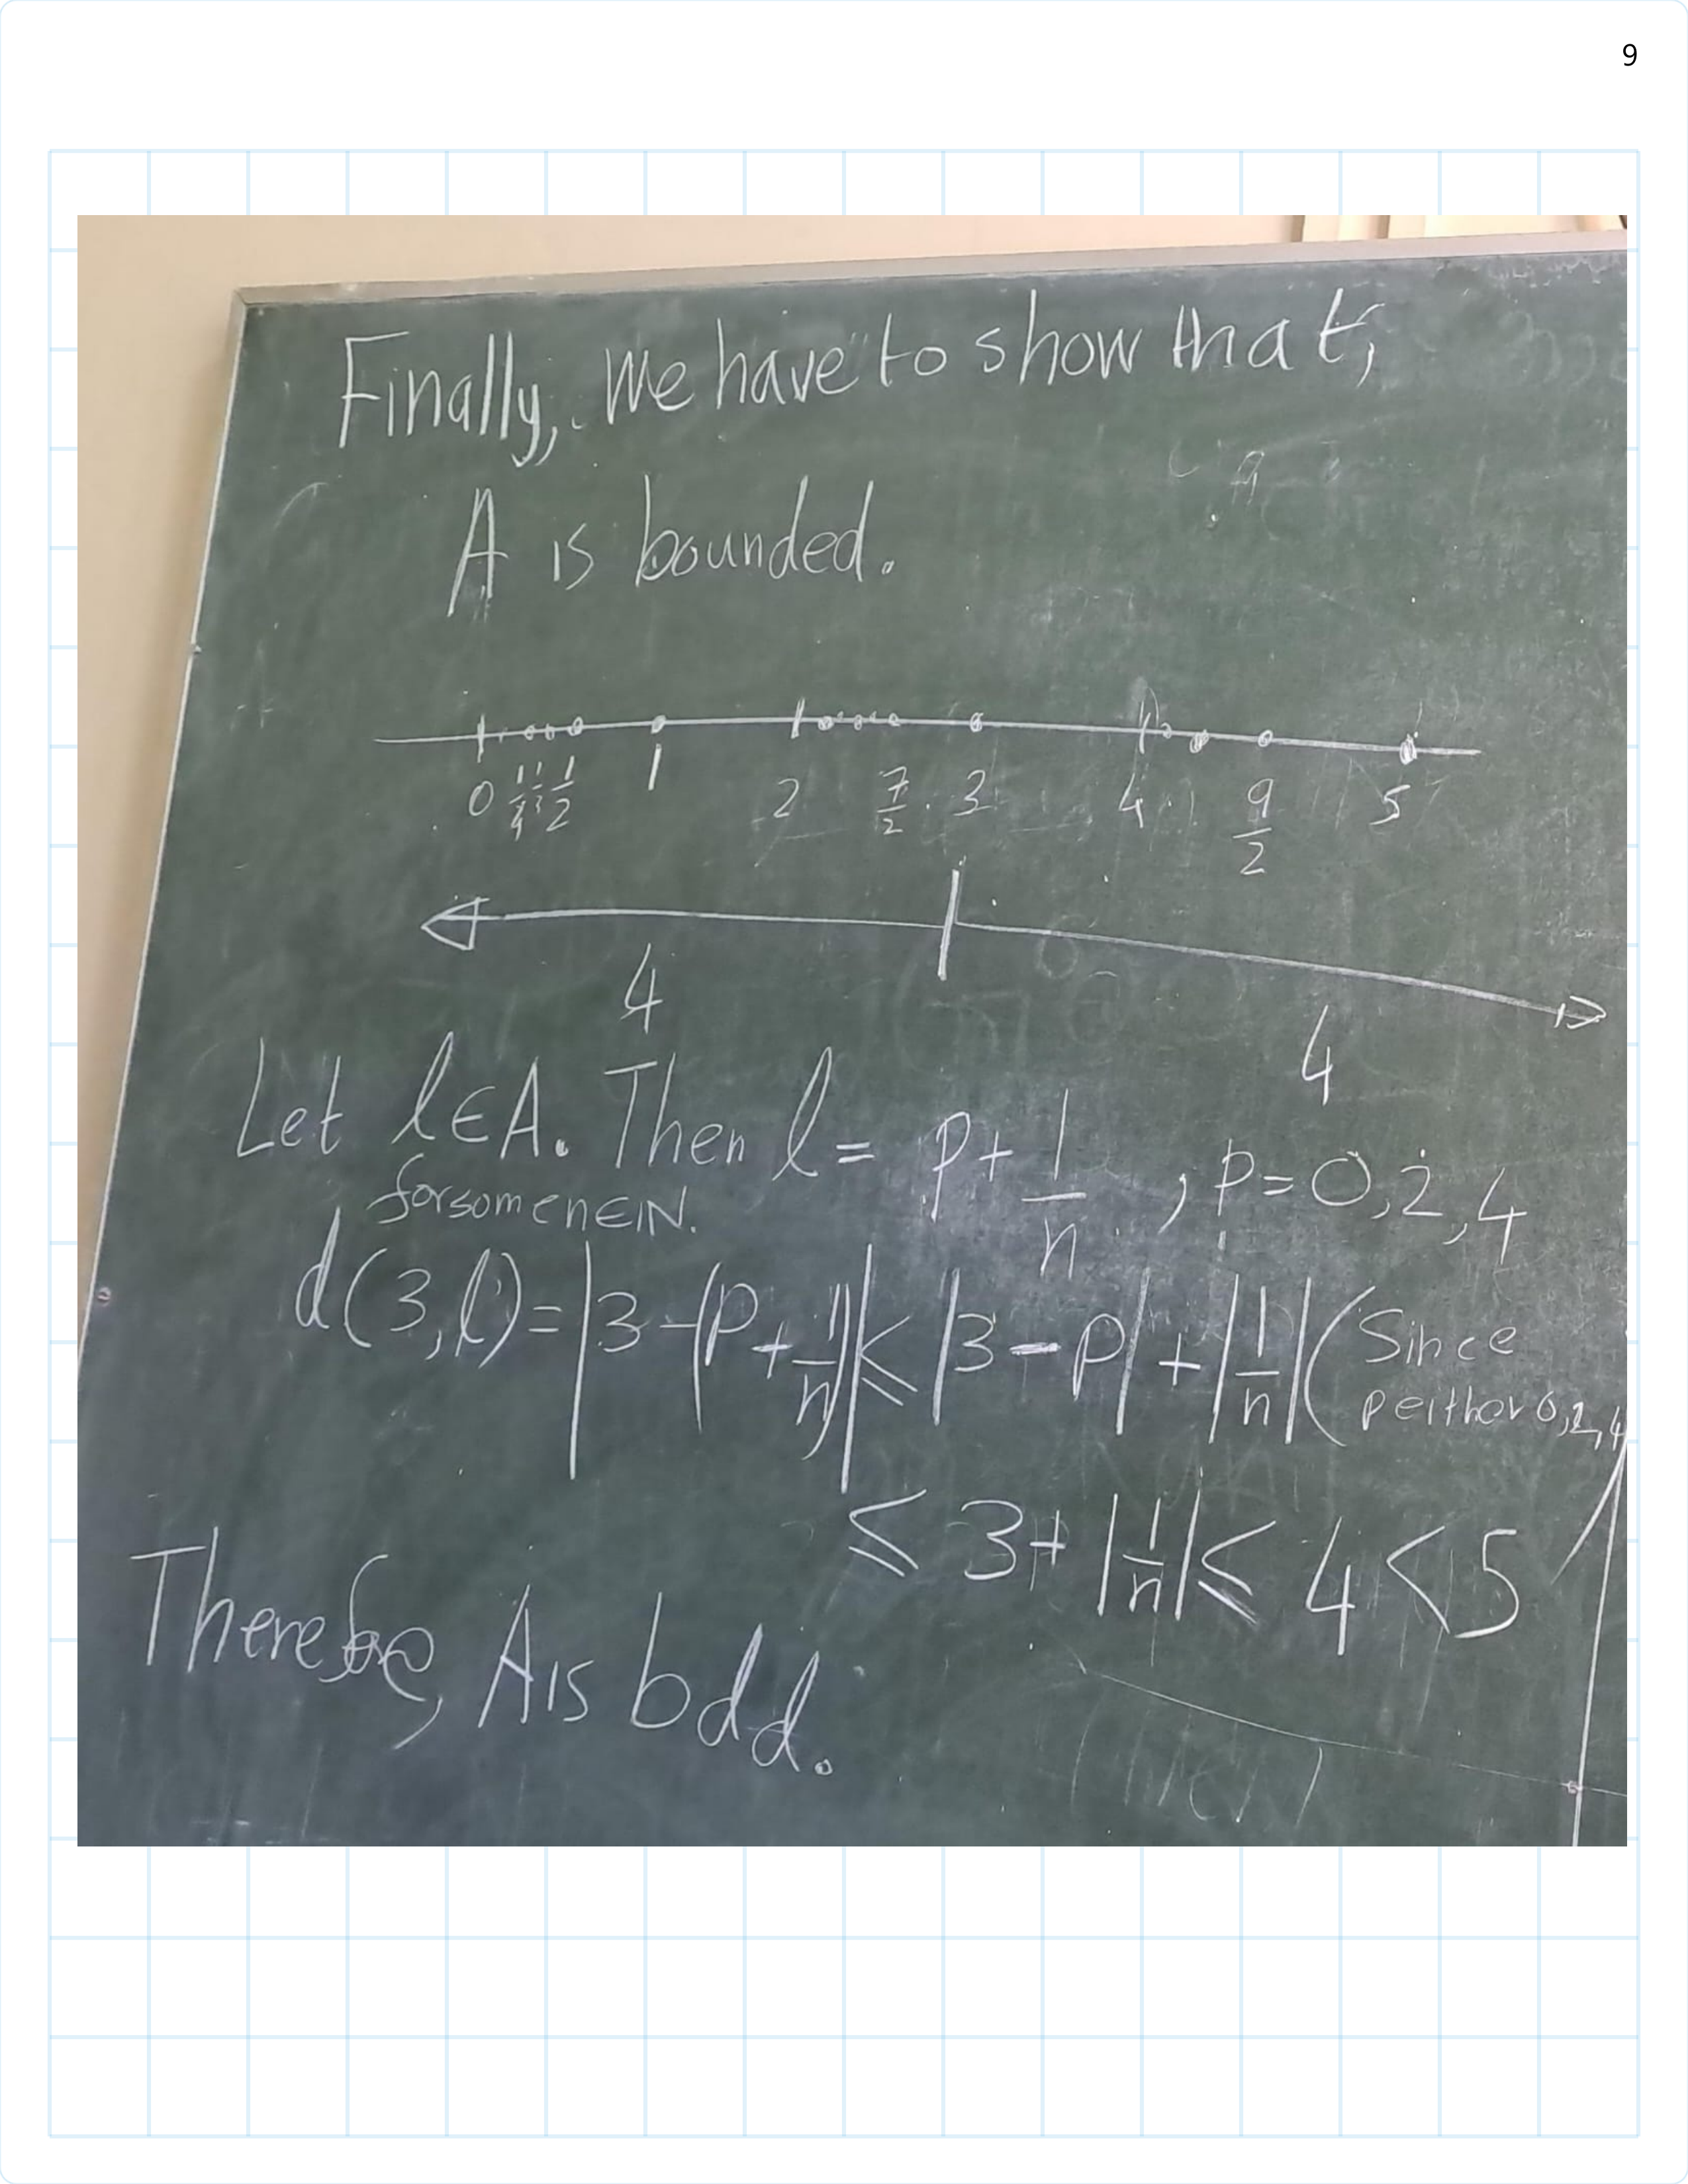 9
Finally, we have to show that,
A is bounded.
0 1/4 1/3 1/2 1 2 7/2 3 4 9/2 5
4 4
Let l∈A. Then l = p + 1/n , p = 0, 2, 4
for some n∈IN.
d(3, l) = |3 - (p + 1/n)| ≤ |3 - p| + |1/n| (Since
p either 0, 2, 4
≤ 3 + |1/n| ≤ 4 < 5
Therefore, A is bdd.